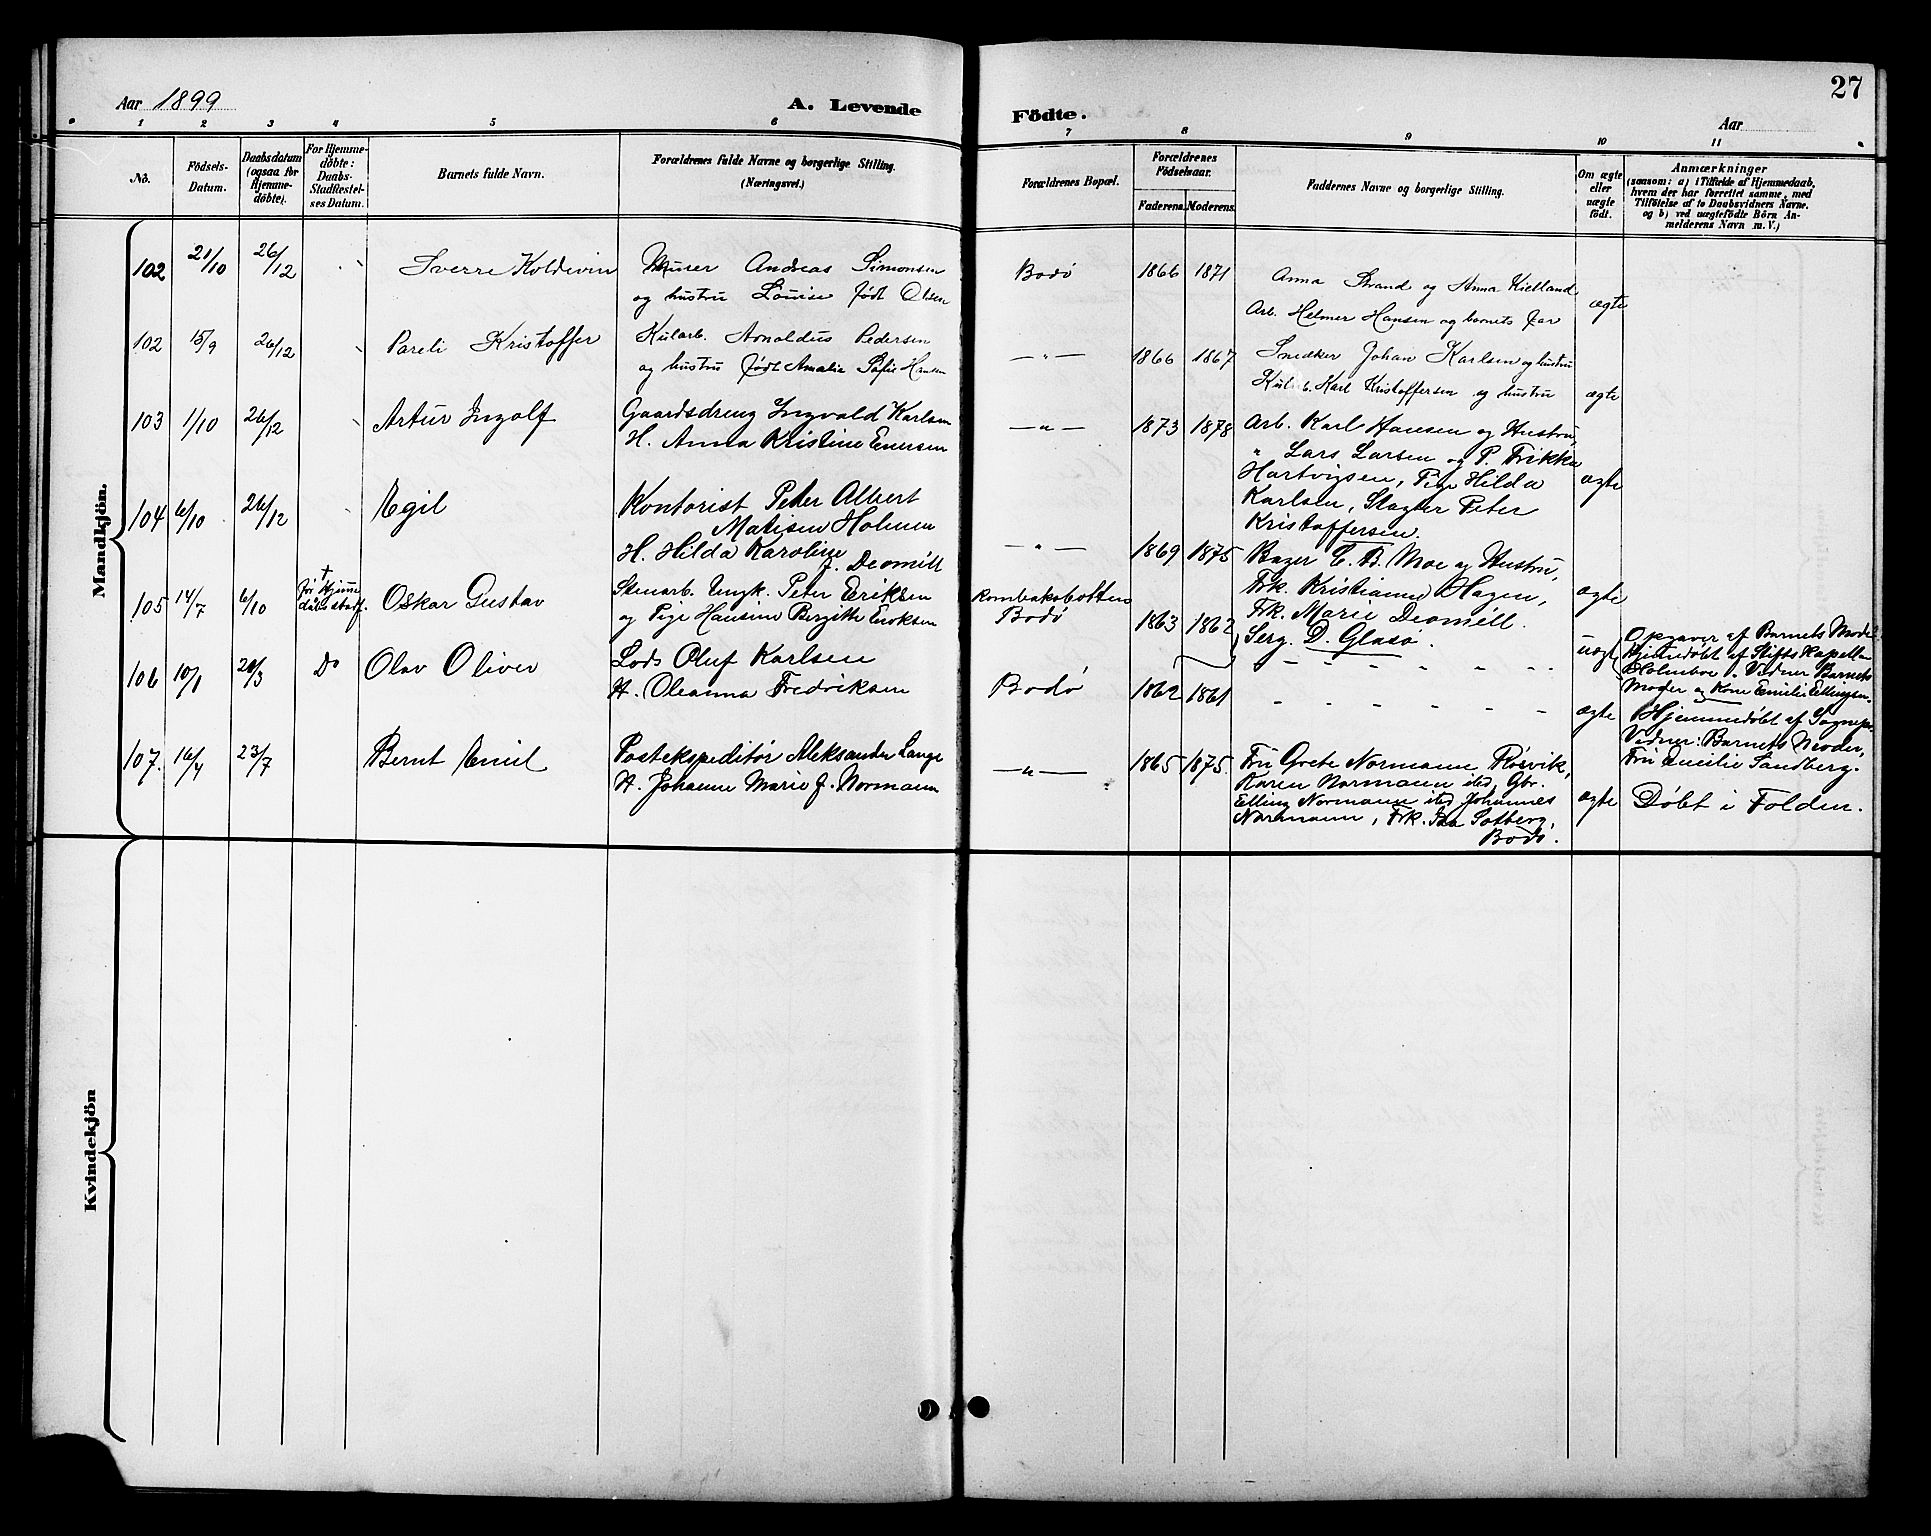 27
Aar 1899
A. Levende
Födte.
Aar
1 2 3 4 5 6 7 8 9 10 11
No.
Födsels-
Datum.
Daabsdatum
(ogsaa for
Hjemme-
döbte).
For Hjemme-
döbte:
Daabs-
Stadfæstel-
ses Datum.
Barnets fulde Navn.
Forældrenes fulde Navne og borgerlige Stilling.
(Næringsvei.)
Forældrenes Bopæl.
Forældrenes
Födselsaar.
Faderens. Moderens.
Faddernes Navne og borgerlige Stilling.
Om ægte
eller
uægte
födt.
Anmærkninger
(saasom: a) i Tilfælde af Hjemmedaab,
hvem der har forrettet samme, med
Tilföielse af to Daabsvidners Navne.
og b) ved uægtefödte Börn An-
melderens Navn m. V.)
Mandkjön.
102 21/10 26/12 Sverre Koldevin
Murer Andreas Simonsen
og hustru Louise født Olsen
Bodø 1866 1871
Anna Strand og Anna Kielland
Arb. Helmer Hansen og barnets far
ægte
102 15/9 26/12 Pareli Kristoffer
Kularb. Arnoldus Pedersen
og hustru født Amalie Sofie Hansen
—"— 1866 1867
Snedker Johan Karlsen og hustru
Kularb. Karl Kristoffersen og hustru
ægte
103 1/10 26/12 Artur Ingolf
Gaardsdreng Ingvald Karlsen
H. Anna Kristine Enersen
—"— 1873 1878
Arb. Karl Hansen og Hustru,
" Lars Larsen og P. Frikka
Hartvigsen, Pige Hilda
Karlsen, Slagter Peter
Kristoffersen.
ægte
104 6/10 26/12 Egil
Kontorist Peter Albert
Matisen Holmen
H. Hilda Karoline
f. Deomill
—"— 1869 1875
Bager E. B. Moe og Hustru,
Frk. Kristianne Hagen,
Frk. Marie Deomill.
Serg. D. Glasø.
ægte
105 14/7 6/10
Oskar Gustav
Stenarb. Ungk. Peter Eriksen
og Pige Hansine Bergitte Eriksen
Rombaksbotten
Bodø
1863 1862
uægte
Opgaver af Barnets Moder
Hjemmedøbt af Stiftskapellan
Holmboe. Vidner Barnets
Moder og Kone Emilie Ellingsen.
106 10/1 21/3 Do Olav Oliver
Lods Oluf Karlsen
H. Oleanna Fredriksen
Bodø 1862 1861
ægte
Hjemmedøbt af Sognepr.
Vidner: Barnets Moder,
Fru Cecilie Sandberg.
107. 16/4 23/7 Bernt Emil
Postekspeditør Aleksander Lange
H. Johanne Marie f. Normann
—"— 1865 1875.
Fru Grete Normann Røsvik,
Karen Normann isted, Gbr.
Elling Normann isted Johannes
Normann, Frk. Ida Solberg,
Bodø.
ægte
Døbt i Folden.
Kvindekjön